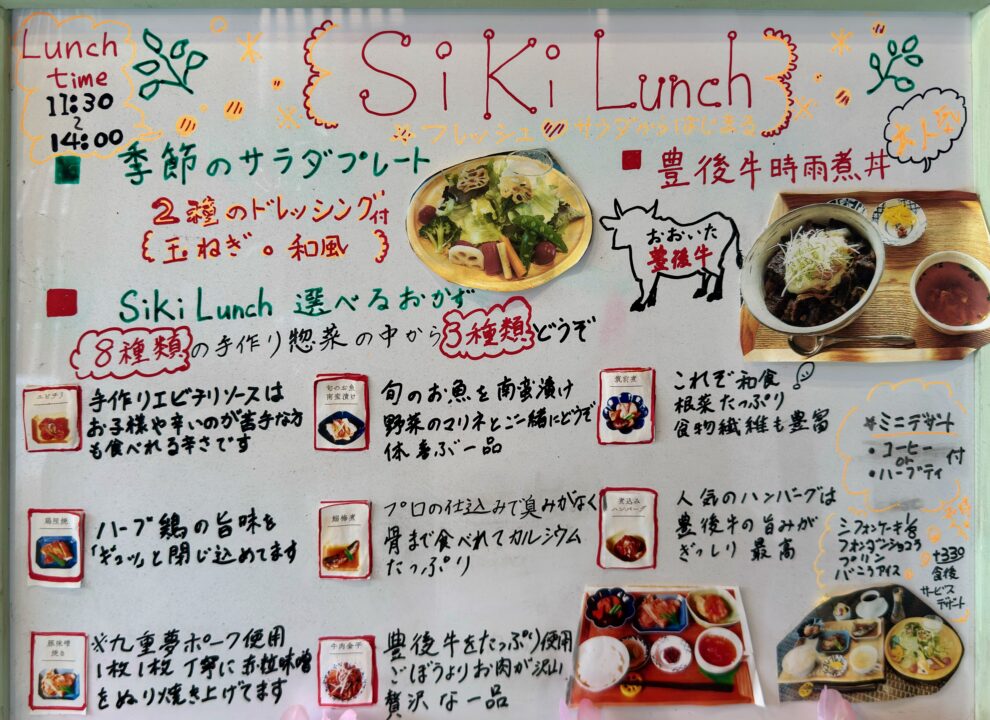 Lunch
time
11:30
~
14:00
Siki Lunch
※フレッシュサラダからはじまる
■ 季節のサラダプレート
2種のドレッシング付
{玉ねぎ。和風}
■ 豊後牛時雨煮丼
大人気
おおいた
豊後牛
■ Siki Lunch 選べるおかず
8種類の手作り惣菜の中から3種類どうぞ
エビチリ
手作りエビチリソースは
お子様や辛いのが苦手な方
も食べれる辛さです
旬のお魚
南蛮漬け
旬のお魚を南蛮漬け
野菜のマリネとご一緒にどうぞ
体喜ぶ一品
筑前煮
これぞ和食
根菜たっぷり
食物繊維も豊富
ハーブ鶏の旨味を
「ギュッ」と閉じ込めてます
プロの仕込みで臭みがなく
骨まで食べれてカルシウム
たっぷり
煮込み
ハンバーグ
人気のハンバーグは
豊後牛の旨みが
ぎっしり 最高
豚味噌
焼き
※九重夢ポーク使用
1枚1枚丁寧に赤粒味噌
をぬり焼き上げてます
牛肉金平
豊後牛をたっぷり使用
ごぼうよりお肉が沢山
贅沢な一品
★ミニデザート
・コーヒー
or
・ハーブティ
付
シフォンケーキ1/8
フォンダンショコラ
プリン
バニラアイス
+330
食後
サービス
デザート